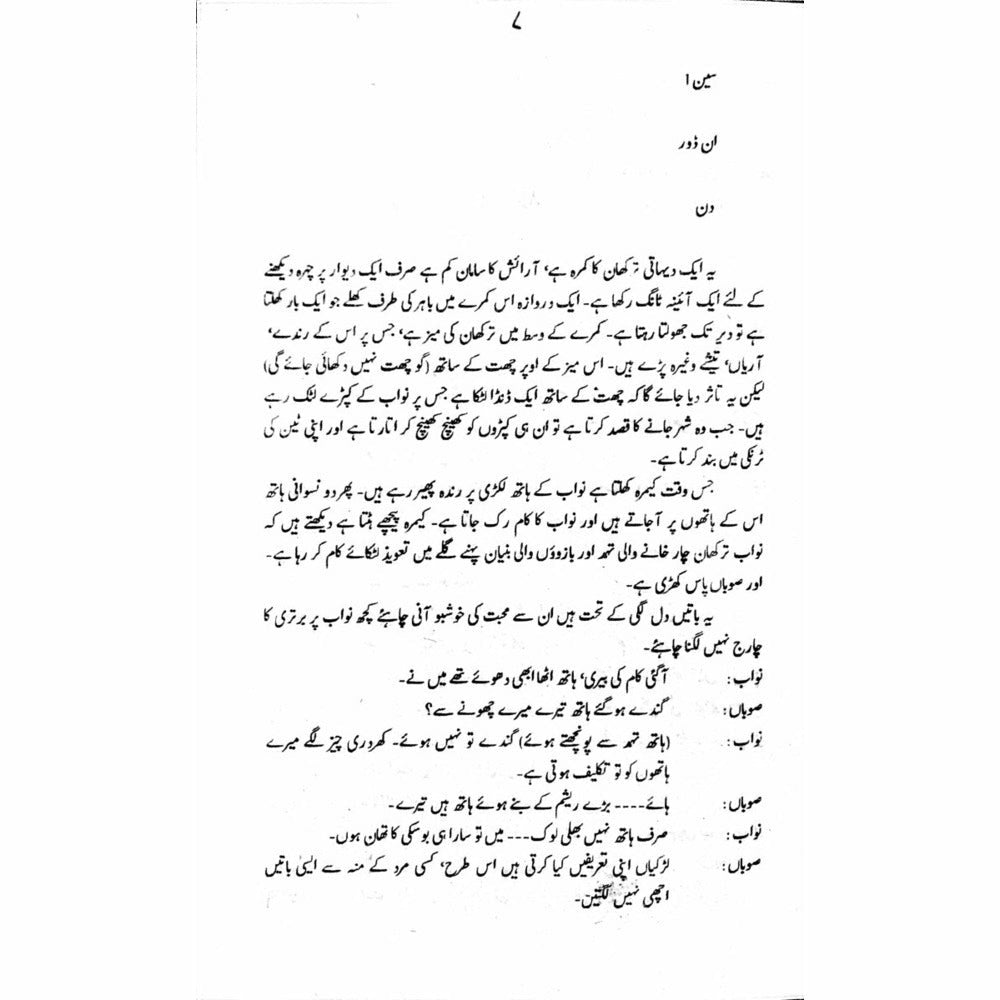 ۷
سین ۱
ان ڈور
دن
یہ ایک دیہاتی ترکھان کا کمرہ ہے، آرائش کا سامان کم ہے صرف ایک دیوار پر چہرہ دیکھنے
کے لئے ایک آئینہ ٹانگ رکھا ہے۔ ایک دروازہ اس کمرے میں باہر کی طرف کھلے جو ایک بار کھلتا
ہے تو دیر تک جھولتا رہتا ہے۔ کمرے کے وسط میں ترکھان کی میز ہے، جس پر اس کے رندے،
آریاں، تیشے وغیرہ پڑے ہیں۔ اس میز کے اوپر چھت کے ساتھ (گو چھت نہیں دکھائی جائے گی)
لیکن یہ تاثر دیا جائے گا کہ چھت کے ساتھ ایک ڈنڈا لٹکا ہے جس پر نواب کے کپڑے لٹک رہے
ہیں۔ جب وہ شہر جانے کا قصد کرتا ہے تو ان ہی کپڑوں کو کھینچ کھینچ کر اتارتا ہے اور اپنی ٹین کی
ٹرنکی میں بند کرتا ہے۔
جس وقت کیمرہ کھلتا ہے نواب کے ہاتھ لکڑی پر رندہ پھیر رہے ہیں۔ پھر دو نسوانی ہاتھ
اس کے ہاتھوں پر آجاتے ہیں اور نواب کا کام رک جاتا ہے۔ کیمرہ پیچھے ہٹتا ہے دیکھتے ہیں کہ
نواب ترکھان چار خانے والی تہمد اور بازوؤں والی بنیان پہنے گلے میں تعویذ لٹکائے کام کر رہا ہے۔
اور صوباں پاس کھڑی ہے۔
یہ باتیں دل لگی کے تحت ہیں ان سے محبت کی خوشبو آنی چاہئے کچھ نواب پر برتری کا
چارج نہیں لگنا چاہئے۔
نواب: آگئی کام کی بیری، ہاتھ اٹھا ابھی دھوئے تھے میں نے۔
صوباں: گندے ہو گئے ہاتھ تیرے میرے چھونے سے؟
نواب: (ہاتھ تہمد سے پونچھتے ہوئے) گندے تو نہیں ہوئے۔ کھردری چیز لگے میرے
ہاتھوں کو تو تکلیف ہوتی ہے۔
صوباں: ہائے---- بڑے ریشم کے بنے ہوئے ہاتھ ہیں تیرے۔
نواب: صرف ہاتھ نہیں بھلی لوک--- میں تو سارا ہی بوسکی کا تھان ہوں۔
صوباں: لڑکیاں اپنی تعریفیں کیا کرتی ہیں اس طرح، کسی مرد کے منہ سے ایسی باتیں
اچھی نہیں لگتیں۔